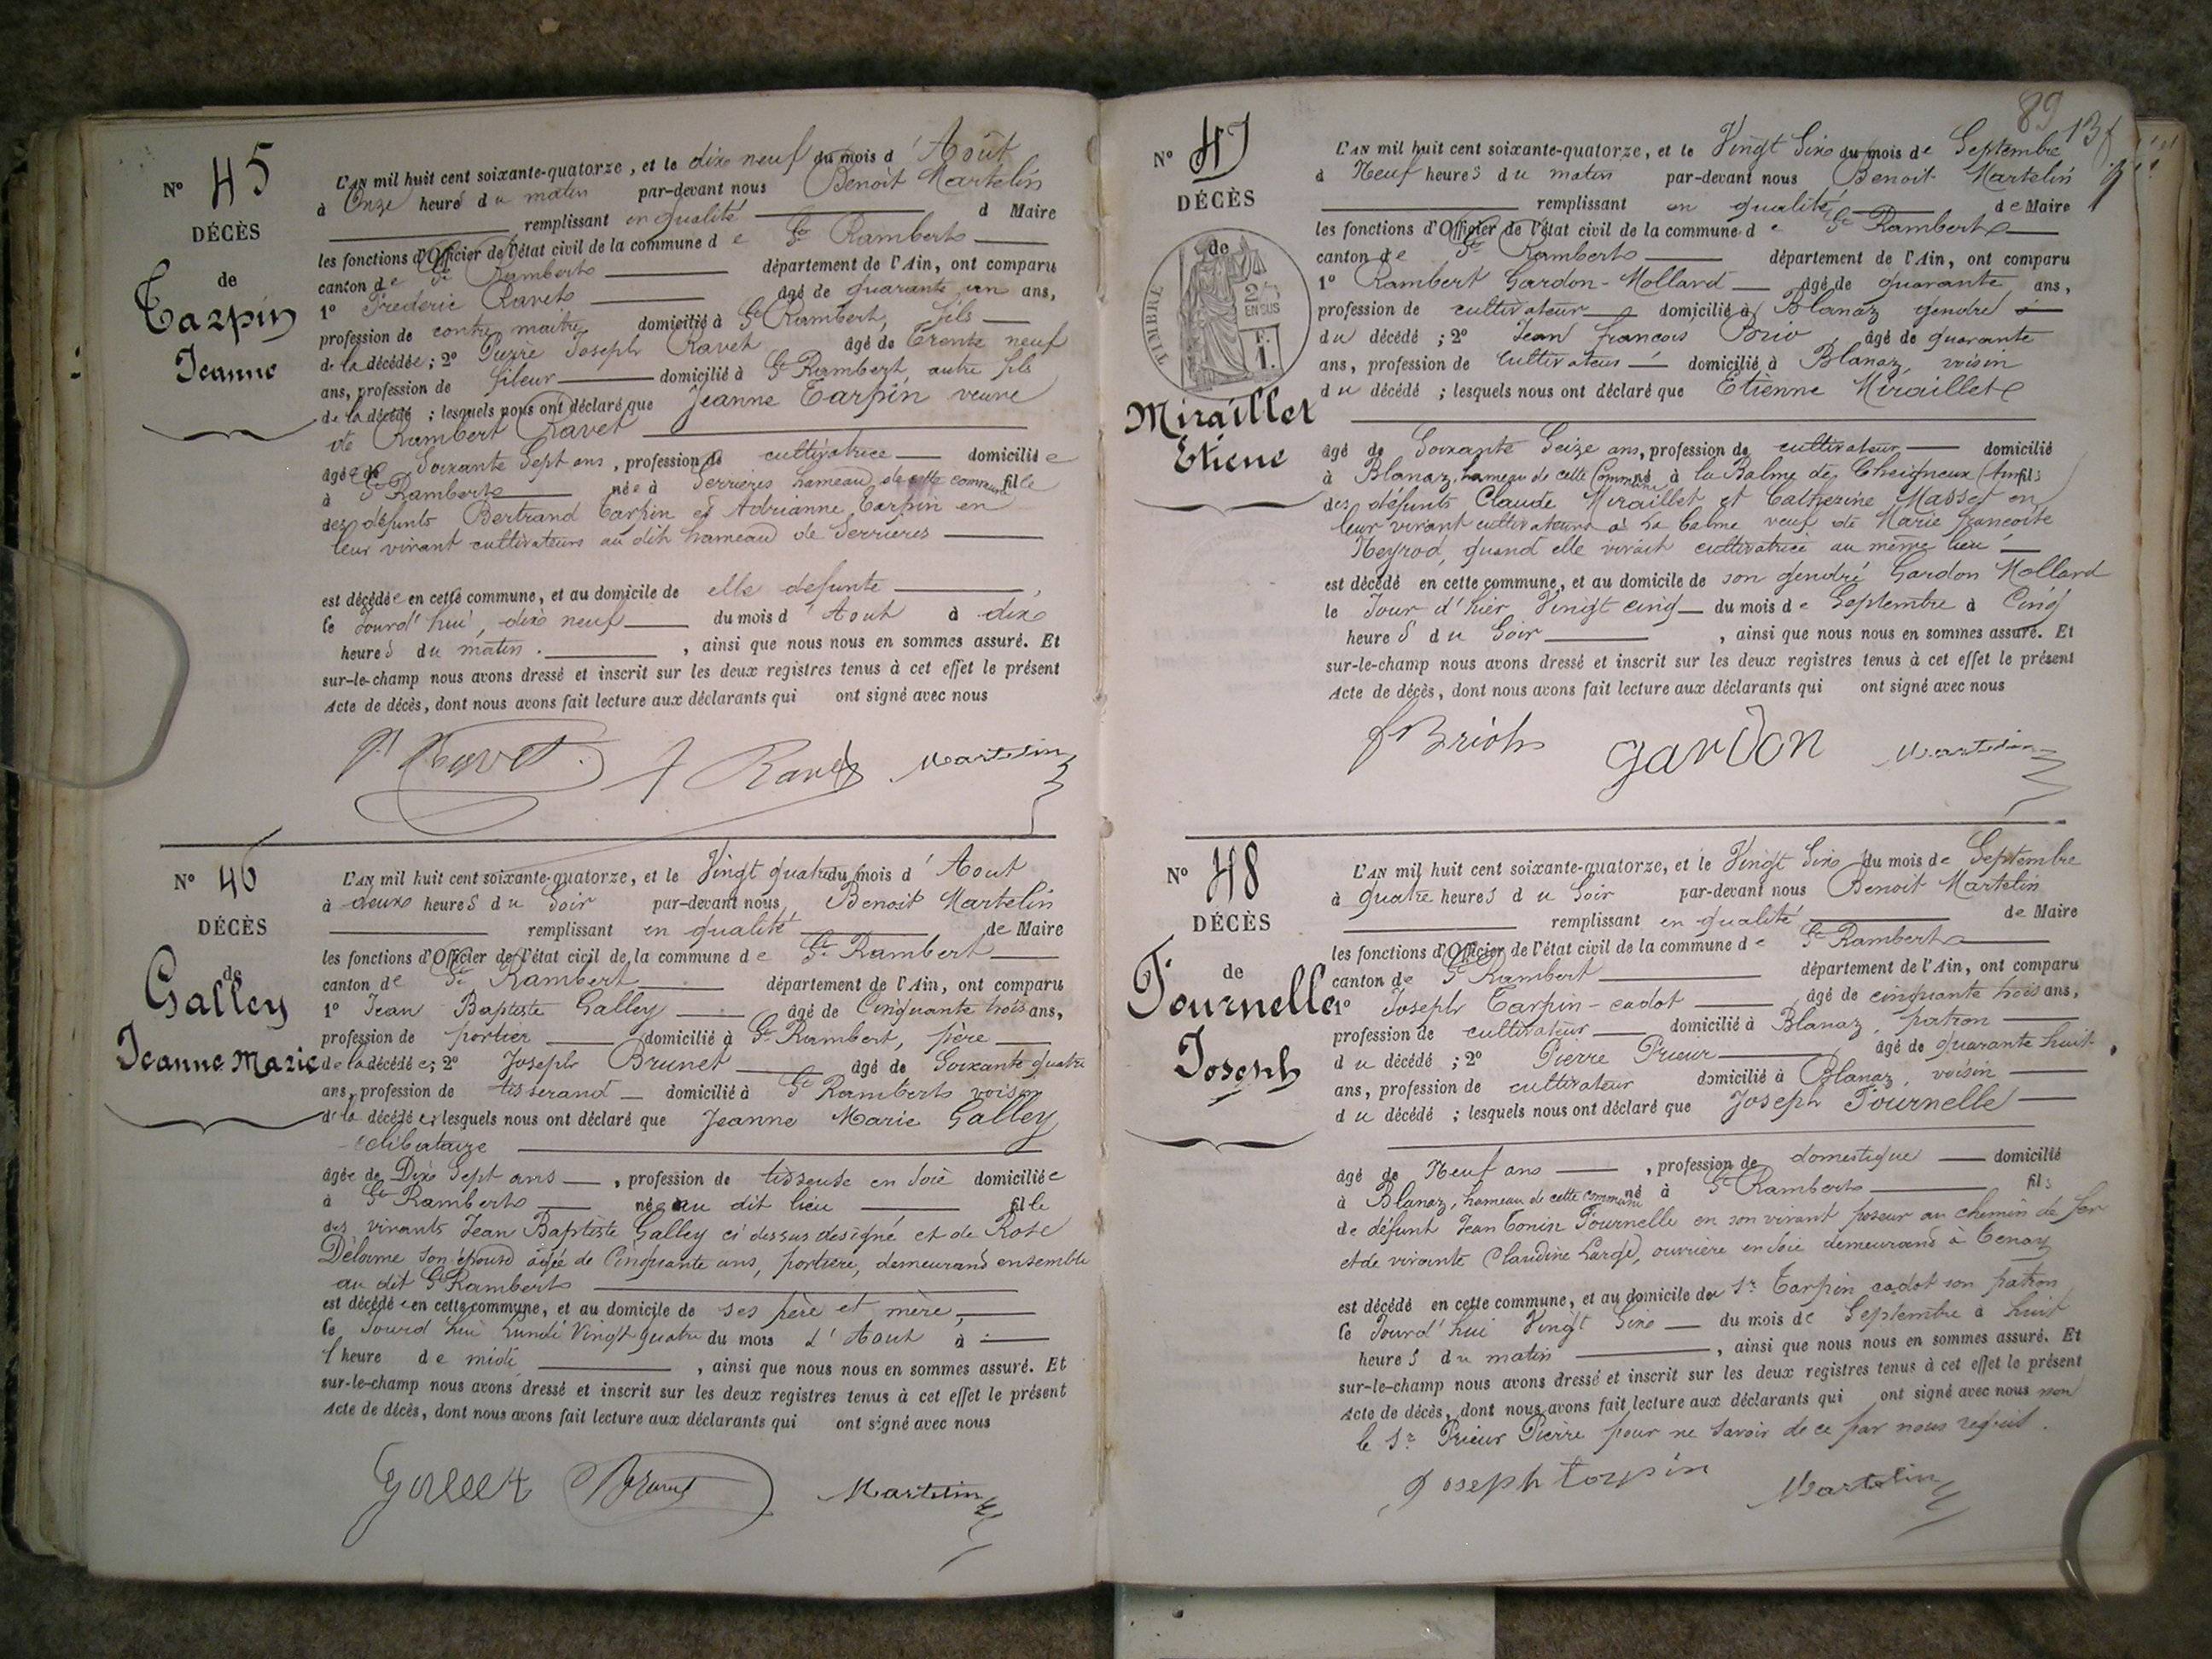 N° 45
DÉCÈS
de
Tarpin
Jeanne
L'AN mil huit cent soixante-quatorze, et le dixe neuf du mois d'Août
à Onze heures du matin par-devant nous Benoit Martelin
remplissant en qualité d Maire
les fonctions d'Officier de l'état civil de la commune de St Rambert
canton de St Rambert département de l'Ain, ont comparu
1° Frederic Ravet âgé de quarante un ans,
profession de contre maitre domicilié à St Rambert, fils
de la décédée; 2° Pierre Joseph Ravet âgé de Trente neuf
ans, profession de fileur domicilié à St Rambert, autre fils
de la décédé; lesquels nous ont déclaré que Jeanne Tarpin veuve
de Rambert Ravet
âgée de Soixante Sept ans, profession de cultivatrice domiciliée
à St Rambert née à Serrieres hameau de cette commune fille
des défunts Bertrand Tarpin et Adrianne Tarpin en
leur vivant cultivateurs au dit hameau de Serrieres
est décédée en cette commune, et au domicile de elle defunte,
le Jourd'hui, dixe neuf du mois d'Aout à dixe
heures du matin, ainsi que nous nous en sommes assuré. Et
sur-le-champ nous avons dressé et inscrit sur les deux registres tenus à cet effet le présent
Acte de décès, dont nous avons fait lecture aux déclarants qui ont signé avec nous
Ravet Ravet Martelin
N° 46
DÉCÈS
de
Galley
Jeanne Marie
L'AN mil huit cent soixante-quatorze, et le Vingt quatre du mois d'Aout
à deuxe heures du Soir par-devant nous Benoit Martelin
remplissant en qualité de Maire
les fonctions d'Officier de l'état civil de la commune de St Rambert
canton de St Rambert département de l'Ain, ont comparu
1° Jean Baptiste Galley âgé de Cinquante trois ans,
profession de portier domicilié à St Rambert, père
de la décédée; 2° Joseph Brunet âgé de Soixante quatre
ans, profession de tisserand domicilié à St Rambert voisin
de la décédée; lesquels nous ont déclaré que Jeanne Marie Galley
célibataire
âgée de Dixe Sept ans, profession de tisseuse en soie domiciliée
à St Rambert née au dit lieu fille
des vivants Jean Baptiste Galley ci dessus désigné et de Rose
Délorme son épouse âgée de Cinquante ans, portiere, demeurans ensemble
au dit St Rambert
est décédée en cette commune, et au domicile de ses père et mère,
le Jourd'hui Lundi Vingt quatre du mois d'Aout à
1 heure de midi, ainsi que nous nous en sommes assuré. Et
sur-le-champ nous avons dressé et inscrit sur les deux registres tenus à cet effet le présent
Acte de décès, dont nous avons fait lecture aux déclarants qui ont signé avec nous
Brunet Martelin
89
N° 47
DÉCÈS
de
TIMBRE
Miraillet
Etiene
L'AN mil huit cent soixante-quatorze, et le Vingt Sixe du mois de Septembre
à Neuf heures du matin par-devant nous Benoit Martelin
remplissant en qualité de Maire
les fonctions d'Officier de l'état civil de la commune de St Rambert
canton de St Rambert département de l'Ain, ont comparu
1° Rambert Gardon-Mollard âgé de quarante ans,
profession de cultivateur domicilié à Blanaz gendre
du décédé; 2° Jean francois Brio, âgé de quarante
ans, profession de Cultivateur domicilié à Blanaz, voisin
du décédé; lesquels nous ont déclaré que Etienne Miraillet
âgé de Soixante Seize ans, profession de cultivateur domicilié
à Blanaz, hameau de cette Commune né à la Balme de Cheigneux (Ain fils
des défunts Claude Miraillet et Catherine Masset en
leur vivant cultivateurs à La balme veuf de Marie francoise
Neyrod, quand elle vivait cultivatrice au même lieu
est décédé en cette commune, et au domicile de son gendre Gardon Mollard
le Jour d'hier Vingt cinq du mois de Septembre à Cinq
heures du Soir, ainsi que nous nous en sommes assuré. Et
sur-le-champ nous avons dressé et inscrit sur les deux registres tenus à cet effet le présent
Acte de décès, dont nous avons fait lecture aux déclarants qui ont signé avec nous
garDon Martelin
N° 48
DÉCÈS
de
Tournelle
Joseph
L'AN mil huit cent soixante-quatorze, et le Vingt Sixe du mois de Septembre
à quatre heures du Soir par-devant nous Benoit Martelin
remplissant en qualité de Maire
les fonctions d'Officier de l'état civil de la commune de St Rambert
canton de St Rambert département de l'Ain, ont comparu
1° Joseph Tarpin-cadot âgé de cinquante trois ans,
profession de cultivateur domicilié à Blanaz, patron
du décédé; 2° Pierre Prieur âgé de quarante huit
ans, profession de cultivateur domicilié à Blanaz, voisin
du décédé; lesquels nous ont déclaré que Joseph Tournelle
âgé de Neuf ans, profession de domestique domicilié
à Blanaz, hameau de cette commune né à St Rambert fils
de défunt Jean Tonin Tournelle en son vivant poseur au chemin de fer
et de vivante Claudine Large, ouvrière en soie demeurand à Tenay
est décédé en cette commune, et au domicile du Sr Tarpin cadot son patron
le Jourd'hui Vingt Sixe du mois de Septembre à huit
heures du matin, ainsi que nous nous en sommes assuré. Et
sur-le-champ nous avons dressé et inscrit sur les deux registres tenus à cet effet le présent
Acte de décès, dont nous avons fait lecture aux déclarants qui ont signé avec nous non
le Sr Prieur Pierre pour ne savoir de ce par nous requit.
Joseph tarpin Martelin